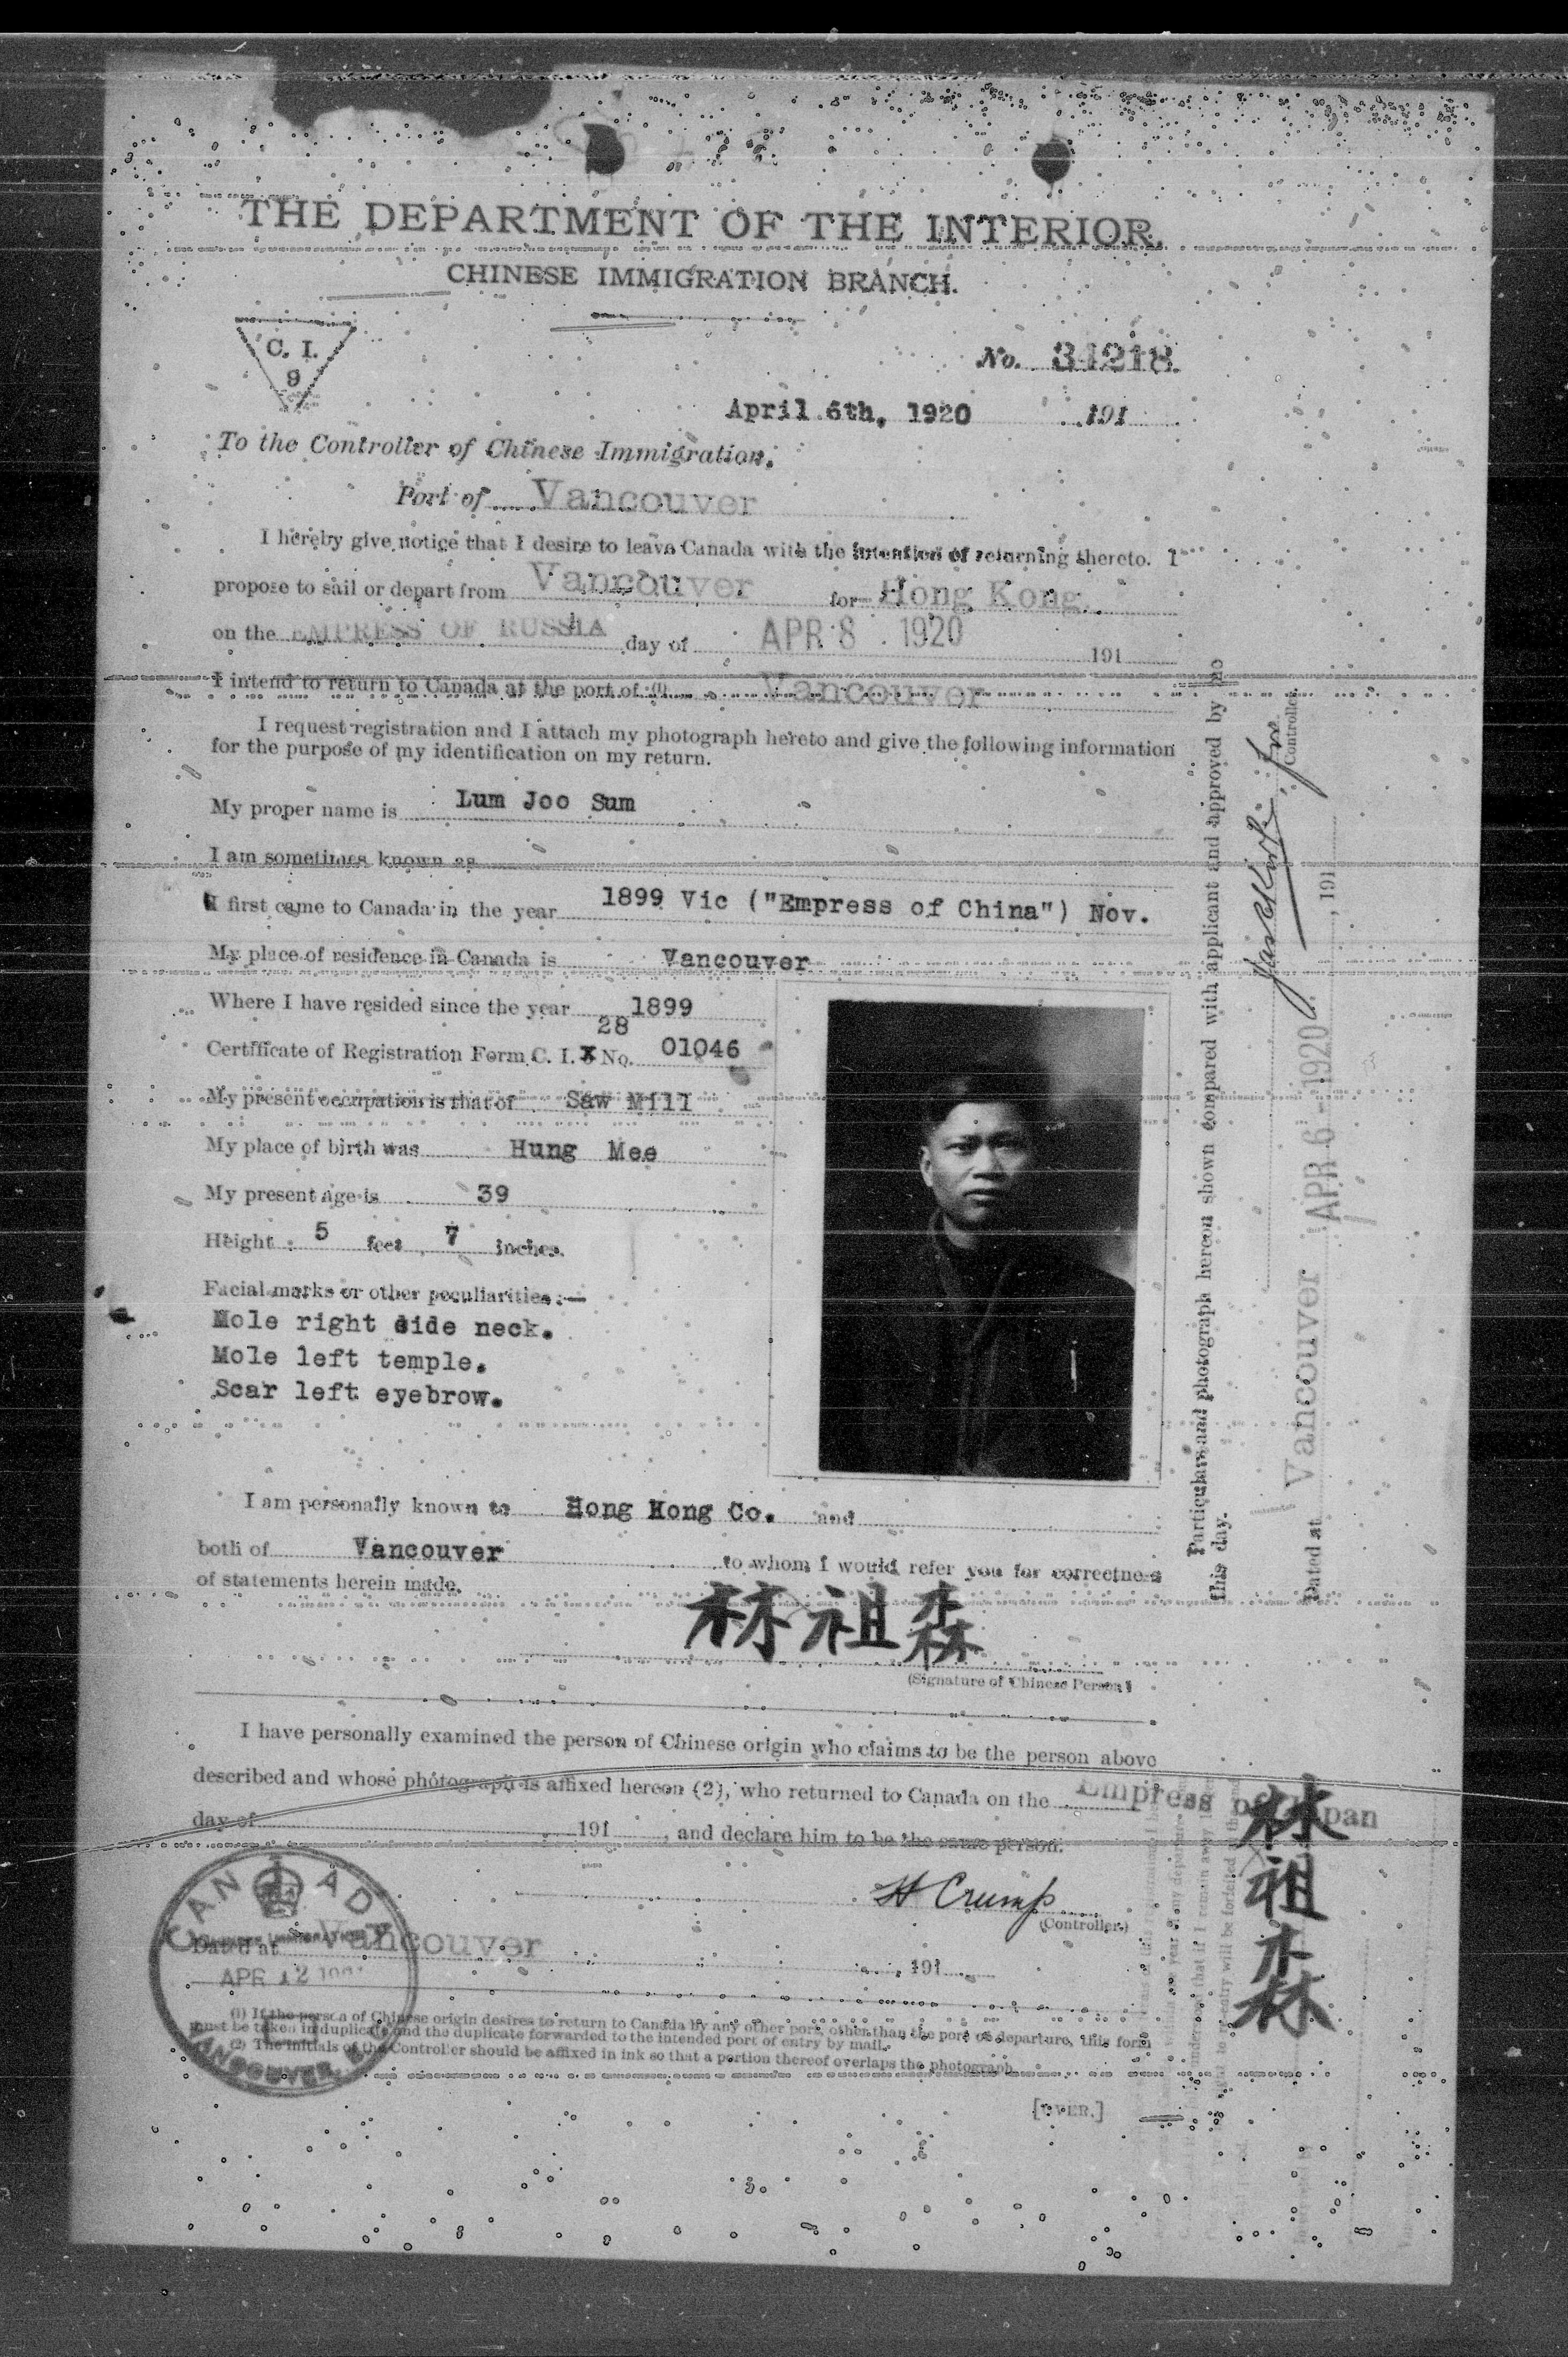 THE DEPARTMENT OF THE INTERIOR.
CHINESE IMMIGRATION BRANCH.
C. I.
9
No. 34218
April 6th, 1920 191
To the Controller of Chinese Immigration,
Port of Vancouver
I hereby give notice that I desire to leave Canada with the intention of returning thereto. I
propose to sail or depart from Vancouver for Hong Kong
on the EMPRESS OF RUSSIA day of APR 8 1920 191
I intend to return to Canada at the port of (1) Vancouver
I request registration and I attach my photograph hereto and give the following information
for the purpose of my identification on my return.
My proper name is Lum Joo Sum
I am sometimes known as
I first came to Canada in the year 1899 Vic ("Empress of China") Nov.
My place of residence in Canada is Vancouver
Where I have resided since the year 1899
28
Certificate of Registration Form C. I. X No. 01046
My present occupation is that of Saw Mill
My place of birth was Hung Mee
My present age is 39
Height 5 feet, 7 inches.
Facial marks or other peculiarities:—
Mole right side neck.
Mole left temple.
Scar left eyebrow.
I am personally known to Hong Hong Co. and
both of Vancouver to whom I would refer you for correctness
of statements herein made.
林祖森
(Signature of Chinese Person)
I have personally examined the person of Chinese origin who claims to be the person above
described and whose photograph is affixed hereon (2), who returned to Canada on the Empress of Japan
day of 191 , and declare him to be the same person.
H Crump
(Controller.)
Dated at Vancouver
191
CANADA
CHINESE IMMIGRATION
APR 12
VANCOUVER, B.C.
(1) If the person of Chinese origin desires to return to Canada by any other port, other than the port of departure, this form
must be taken in duplicate and the duplicate forwarded to the intended port of entry by mail.
(2) The initials of the Controller should be affixed in ink so that a portion thereof overlaps the photograph.
[OVER.]
Particulars and photograph hereon shown compared with applicant and approved by me
this day.
Controller
Dated at Vancouver APR 6 - 1920 , 191
林祖森